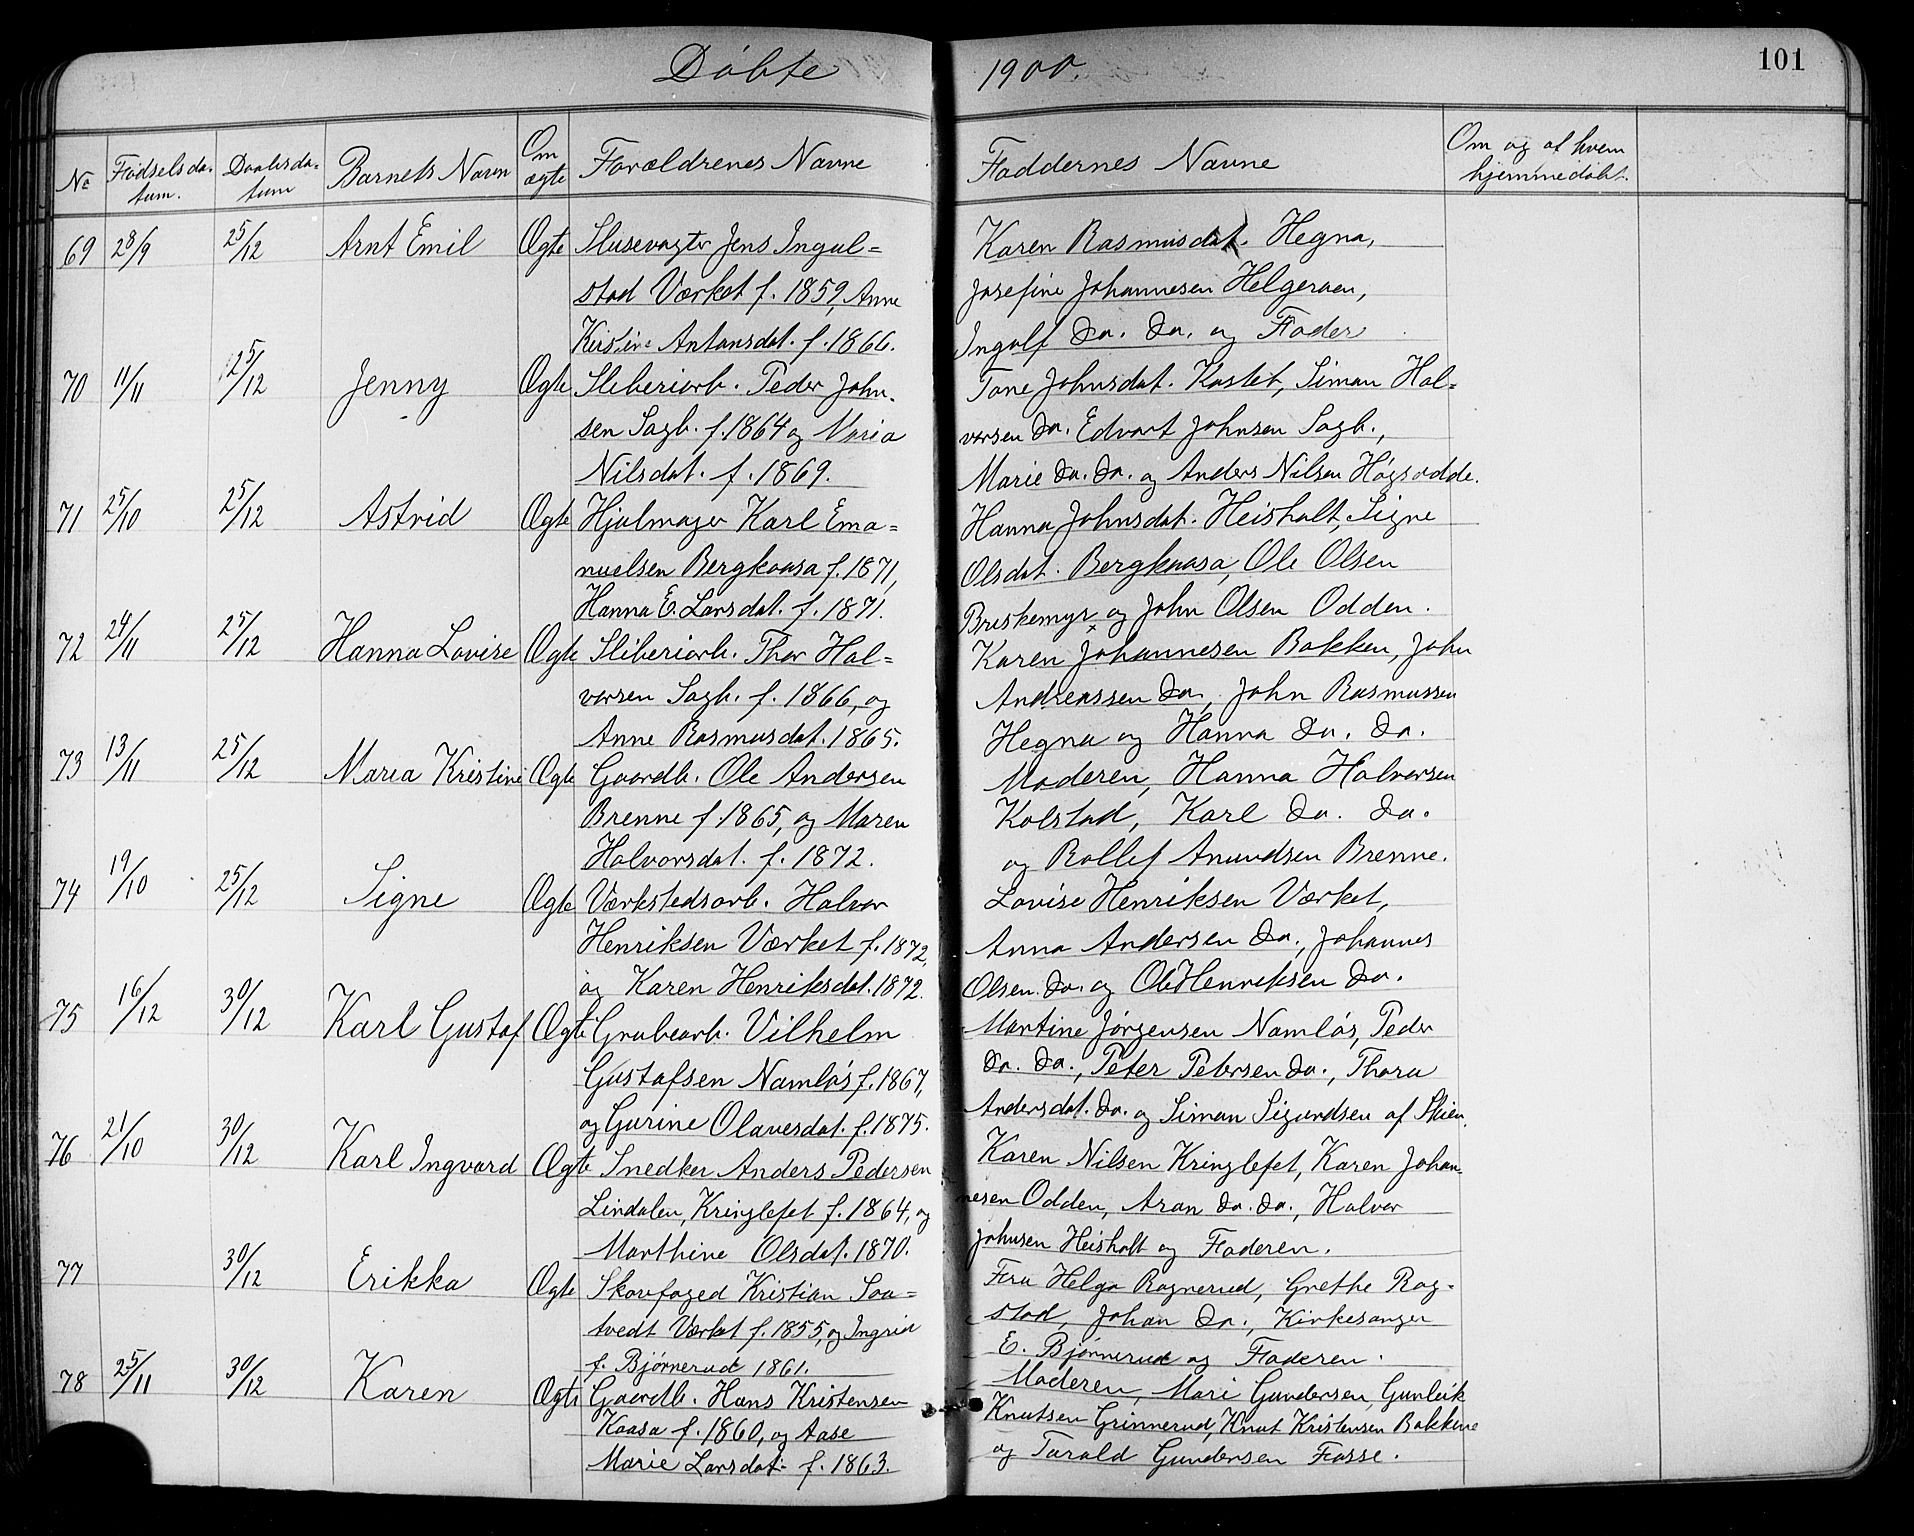 Döbte 1900. 101
№ Fødselsdatum. Daabsdatum Barnets Navn Om ægte Forældrenes Navne Faddernes Navne Om og af hvem hjemmedøbt.
69 28/9 25/12 Arnt Emil Ægte Slusevogter Jens Ingul= Karen Rasmusdat. Hegna,
stad Værket f. 1859, Anne Josefine Johannesen Helgeraen,
Kirstine Antonsdat. f. 1866. Ingolf do. do. og Fader
70 11/11 25/12 Jenny Ægte Sliberiarb. Peder John- Tone Johnsdat. Kastet, Simon Hal=
sen Sagb. f. 1864 og Maria vorsen do. Edvart Johnsen Sagb.,
Nilsdat. f. 1869. Marie do. do. og Anders Nilsen Høgsodde.
71 25/10 25/12 Astrid Ægte Hjulmager Karl Ema= Hanna Johnsdat. Heisholt, Signe
nuelsen Bergkaasa f. 1871, Olsdat. Bergkaasa, Ole Olsen
Hanna E. Larsdat. f. 1871. Briskemyr og John Olsen Odden.
72 24/11 25/12 Hanna Lovise Ægte Sliberiarb. Thor Hal= Karen Johannesen Bakken, John
vorsen Sagb. f. 1866, og Andreassen do., John Rasmussen
Anne Rasmusdat. 1865. Hegna og Hanna do. do.
73 13/11 25/12 Maria Kristine Ægte Gaardb. Ole Andersen Moderen, Hanna Halvorsen
Brenne f. 1865, og Maren Kolstad, Karl do. do.
Halvorsdat. f. 1872. og Rollef Anundsen Brenne.
74 19/10 25/12 Signe Ægte Værkstedsarb. Halvor Lovise Henriksen Værket,
Henriksen Værket f. 1872, Anna Andersen do., Johannes
og Karen Henriksdat. 1872. Olsen do. og Ole Henriksen do.
75 16/12 30/12 Karl Gustaf Ægte Grubearb. Vilhelm Martine Jørgensen Namløs, Peder
Gustafsen Namløs f. 1867, do. do., Peter Petersen do., Thora
og Gurine Olavesdat. f. 1875. Andersdat. do. og Simon Sigurdsen af Skien.
76 21/10 30/12 Karl Ingvard Ægte Snedker Anders Pedersen Karen Nilsen Kringlefet, Karen Johan-
Lindalen, Kringlefet f. 1864, og nesen Odden, Aron do. do., Halvor
Marthine Olsdat. 1870. Johnsen Heisholt og Faderen.
77 30/12 Erikka Ægte Skovfoged Kristian Saa= Fru Helga Ragnerud, Grethe Rog=
tvedt Værket f. 1855, og Ingrid stad, Johan do., Kirkesanger
f. Bjørnerud 1861. E. Bjørnerud og Faderen.
78 25/11 30/12 Karen Ægte Gaardb. Hans Kristensen Moderen, Mari Gundersen, Gunleik
Kaasa f. 1860, og Aase Knutsen Grinnerud, Knut Kristensen Bakkene
Marie Larsdat. f. 1863. og Tarald Gundersen Fosse.